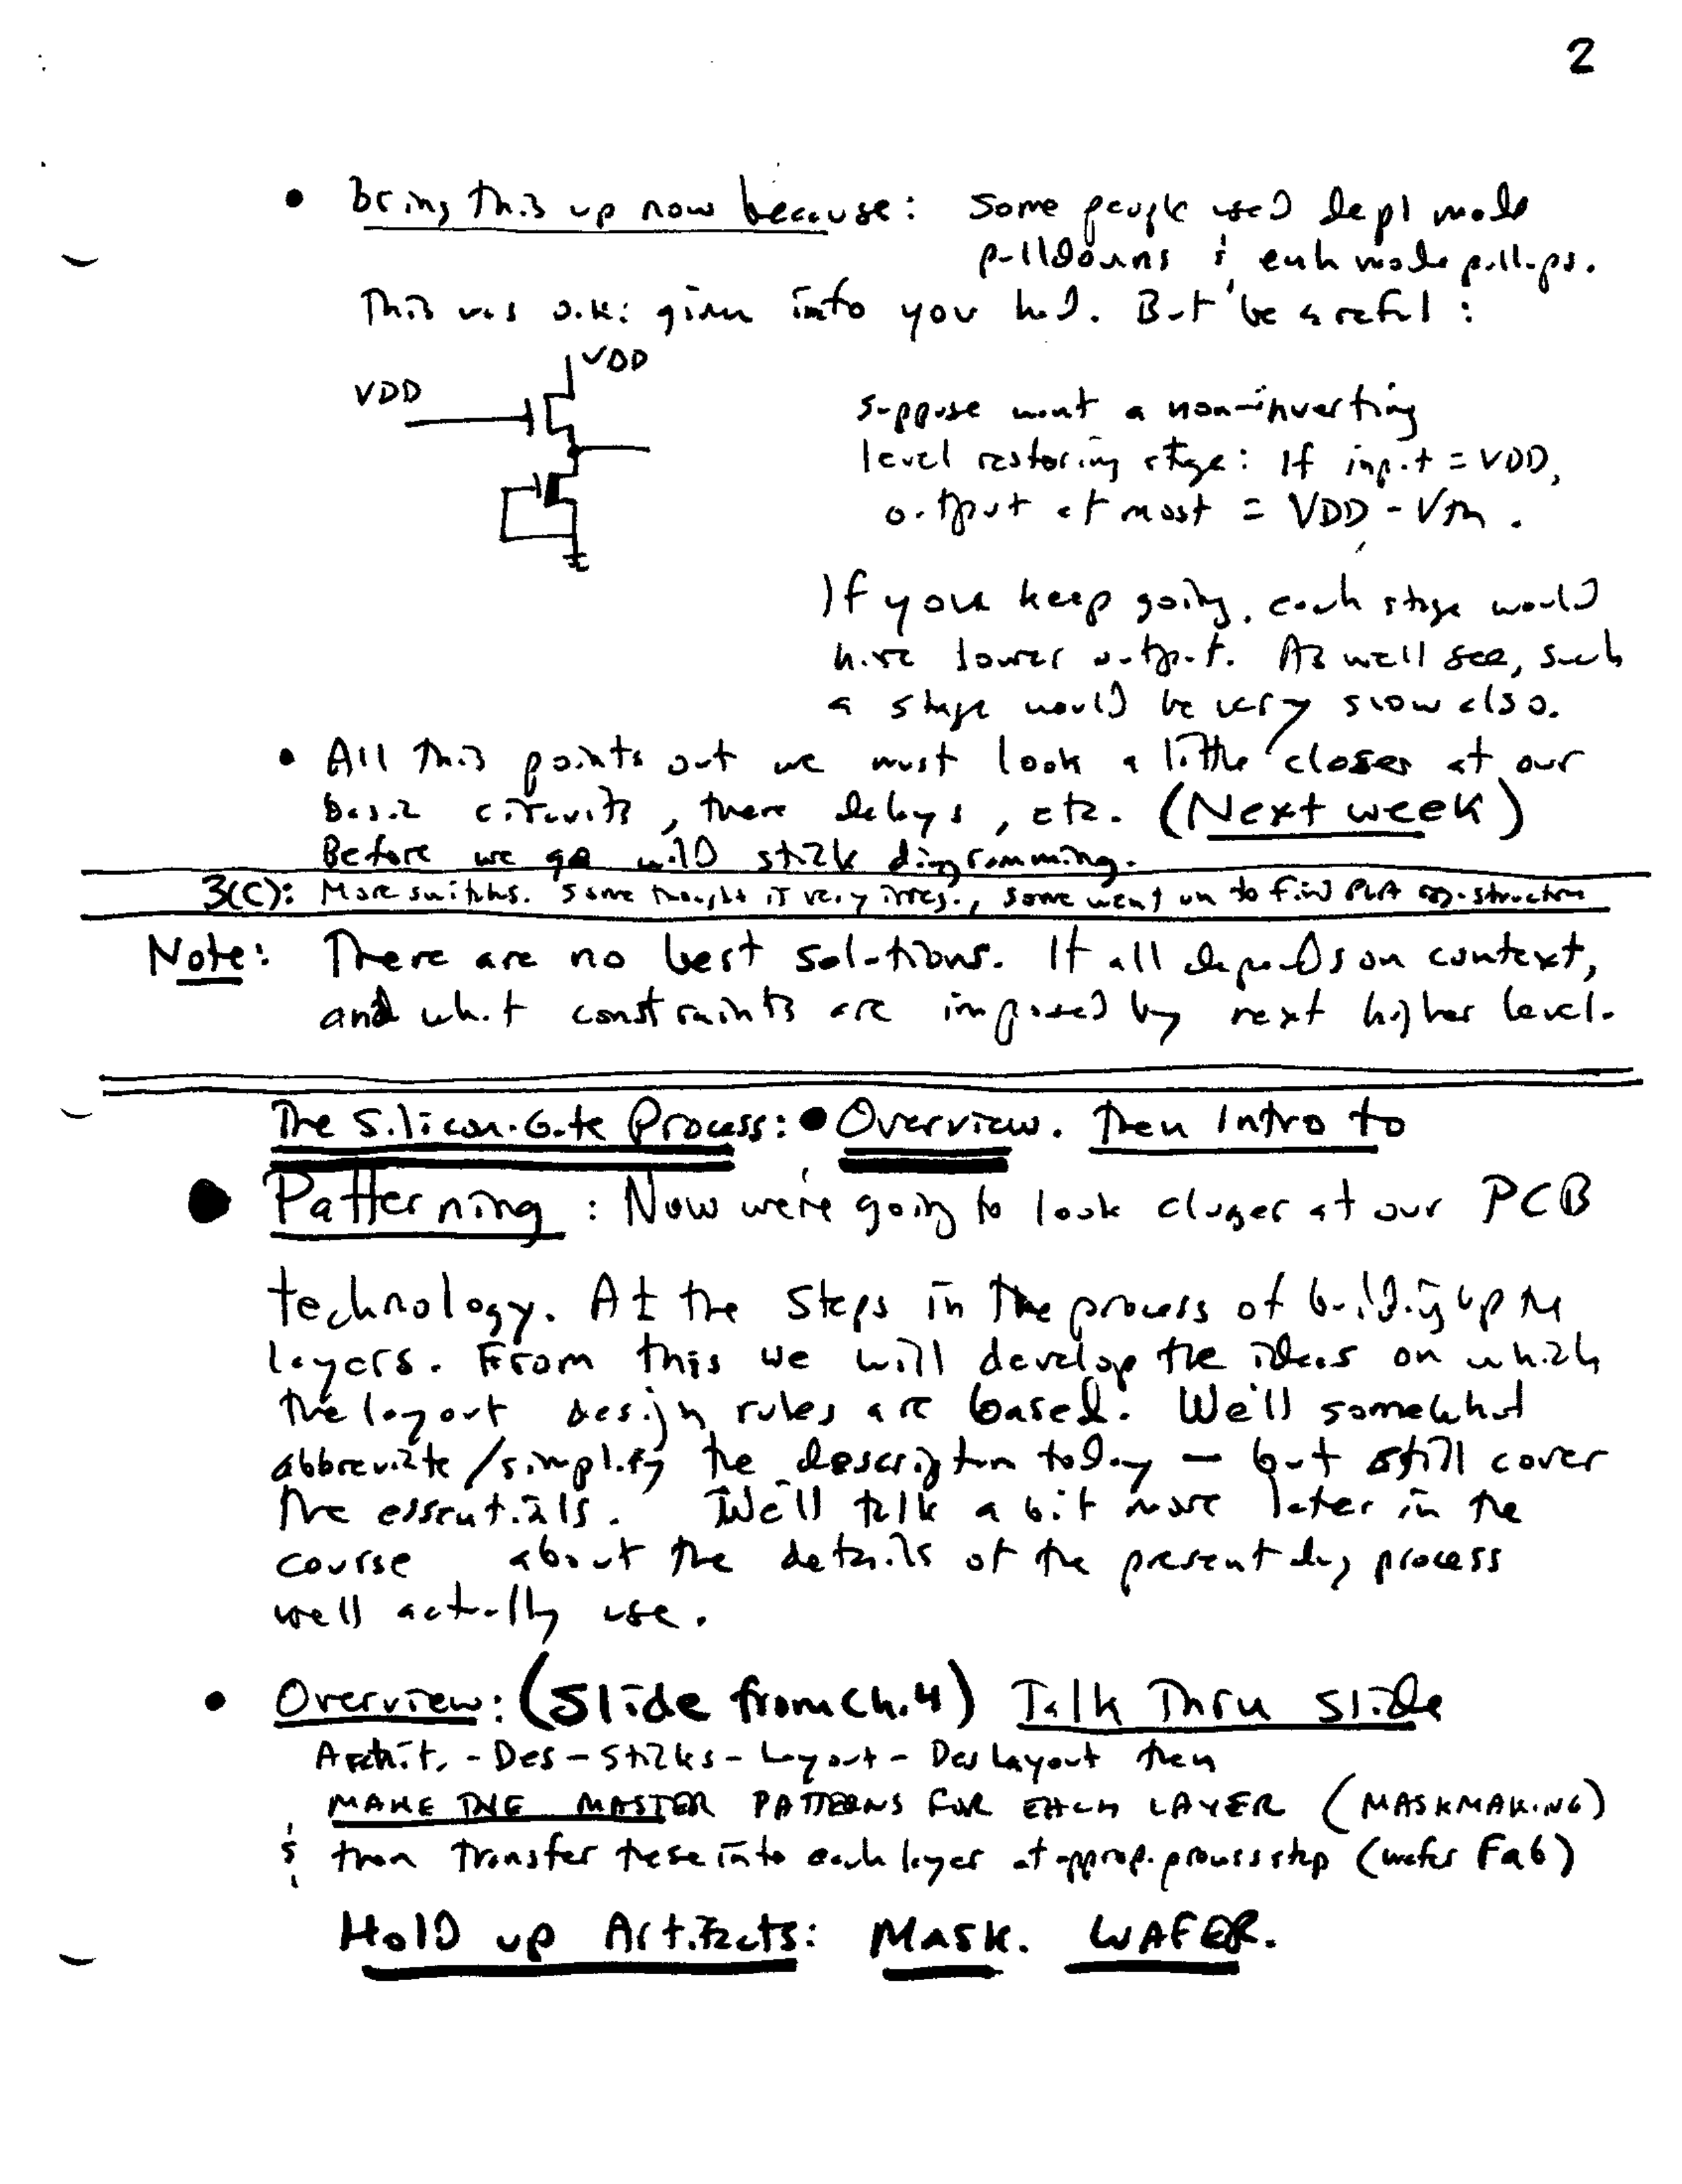 2
• Bring this up now because: Some people used depl mode
pulldowns & enh mode pullups.
This was o.k. given info you had. But be careful:
VDD
VDD
Suppose want a non-inverting
level restoring stage: If input = VDD,
output at most = VDD - Vth.
If you keep going, each stage would
have lower output. As we'll see, such
a stage would be very slow also.
• All this points out we must look a little closer at our
basic circuits, there delays, etc. (Next week)
Before we go wild stick diagramming.
3(C): More switches. Some thought it very irreg., some went on to find PLA
Note: There are no best solutions. It all depends on context,
and what constraints are imposed by next higher level.
The Silicon-Gate Process: • Overview. Then Intro to
• Patterning: Now we're going to look closer at our PCB
technology. At the steps in the process of building up the
layers. From this we will develop the ideas on which
the layout design rules are based. We'll somewhat
abbreviate/simplify the description today — but still cover
the essentials. We'll talk a bit more later in the
course about the details of the present day process
we'll actually use.
• Overview: (Slide from Ch.4) Talk Thru Slide
Archit. - Des - Sticks - Layout - Des Layout then
MAKE THE MASTER PATTERNS FOR EACH LAYER (MASKMAKING)
& then Transfer these into each layer at approp. process step (wafer Fab)
Hold up Artifacts: MASK. WAFER.